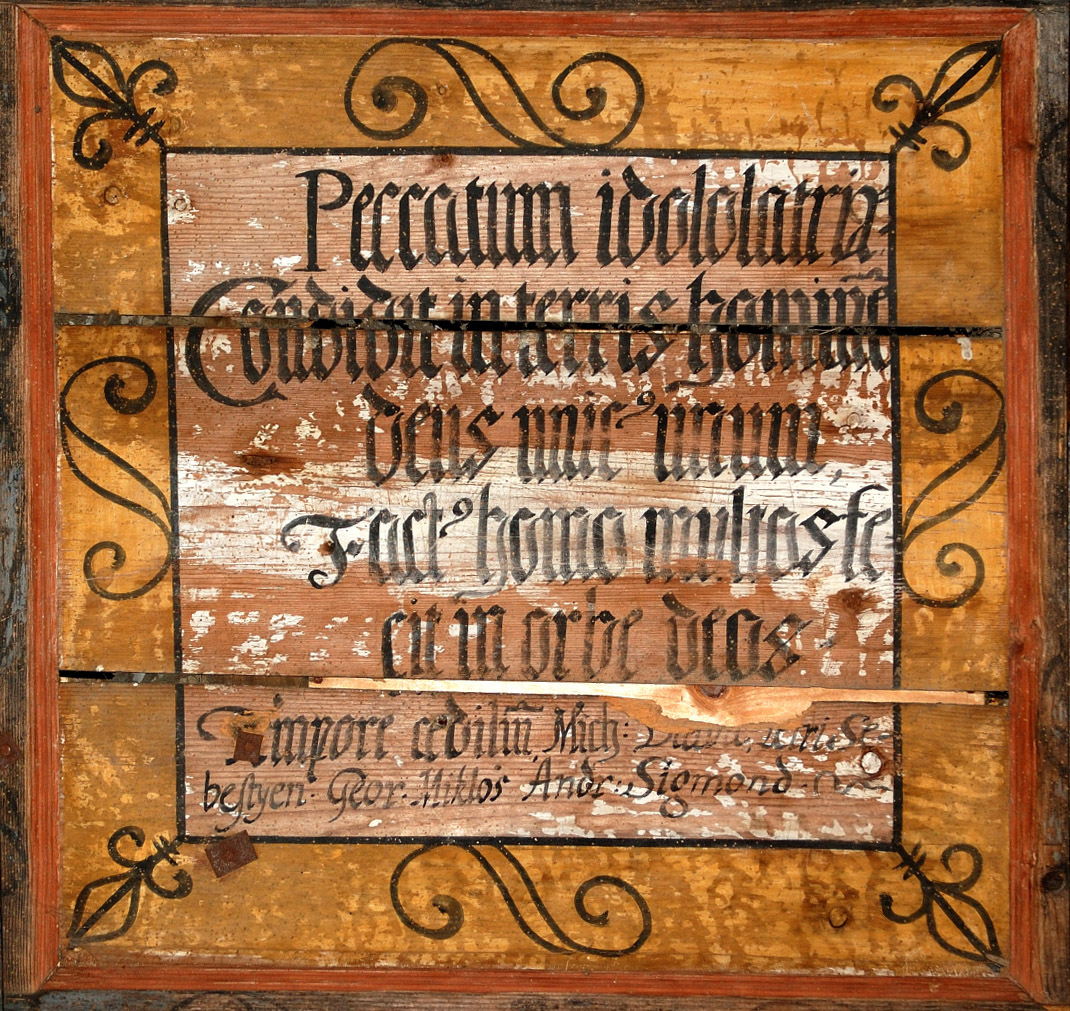 Peccatum idololatriæ.
Condidit in terris hominẽ
Deus unicꝰ unum,
Factꝰ homo multos fe-
cit in orbe deos.
Timpore ædiliũ Mich: Se-
bestyen. Geor. Miklos Andr: Sigmond.